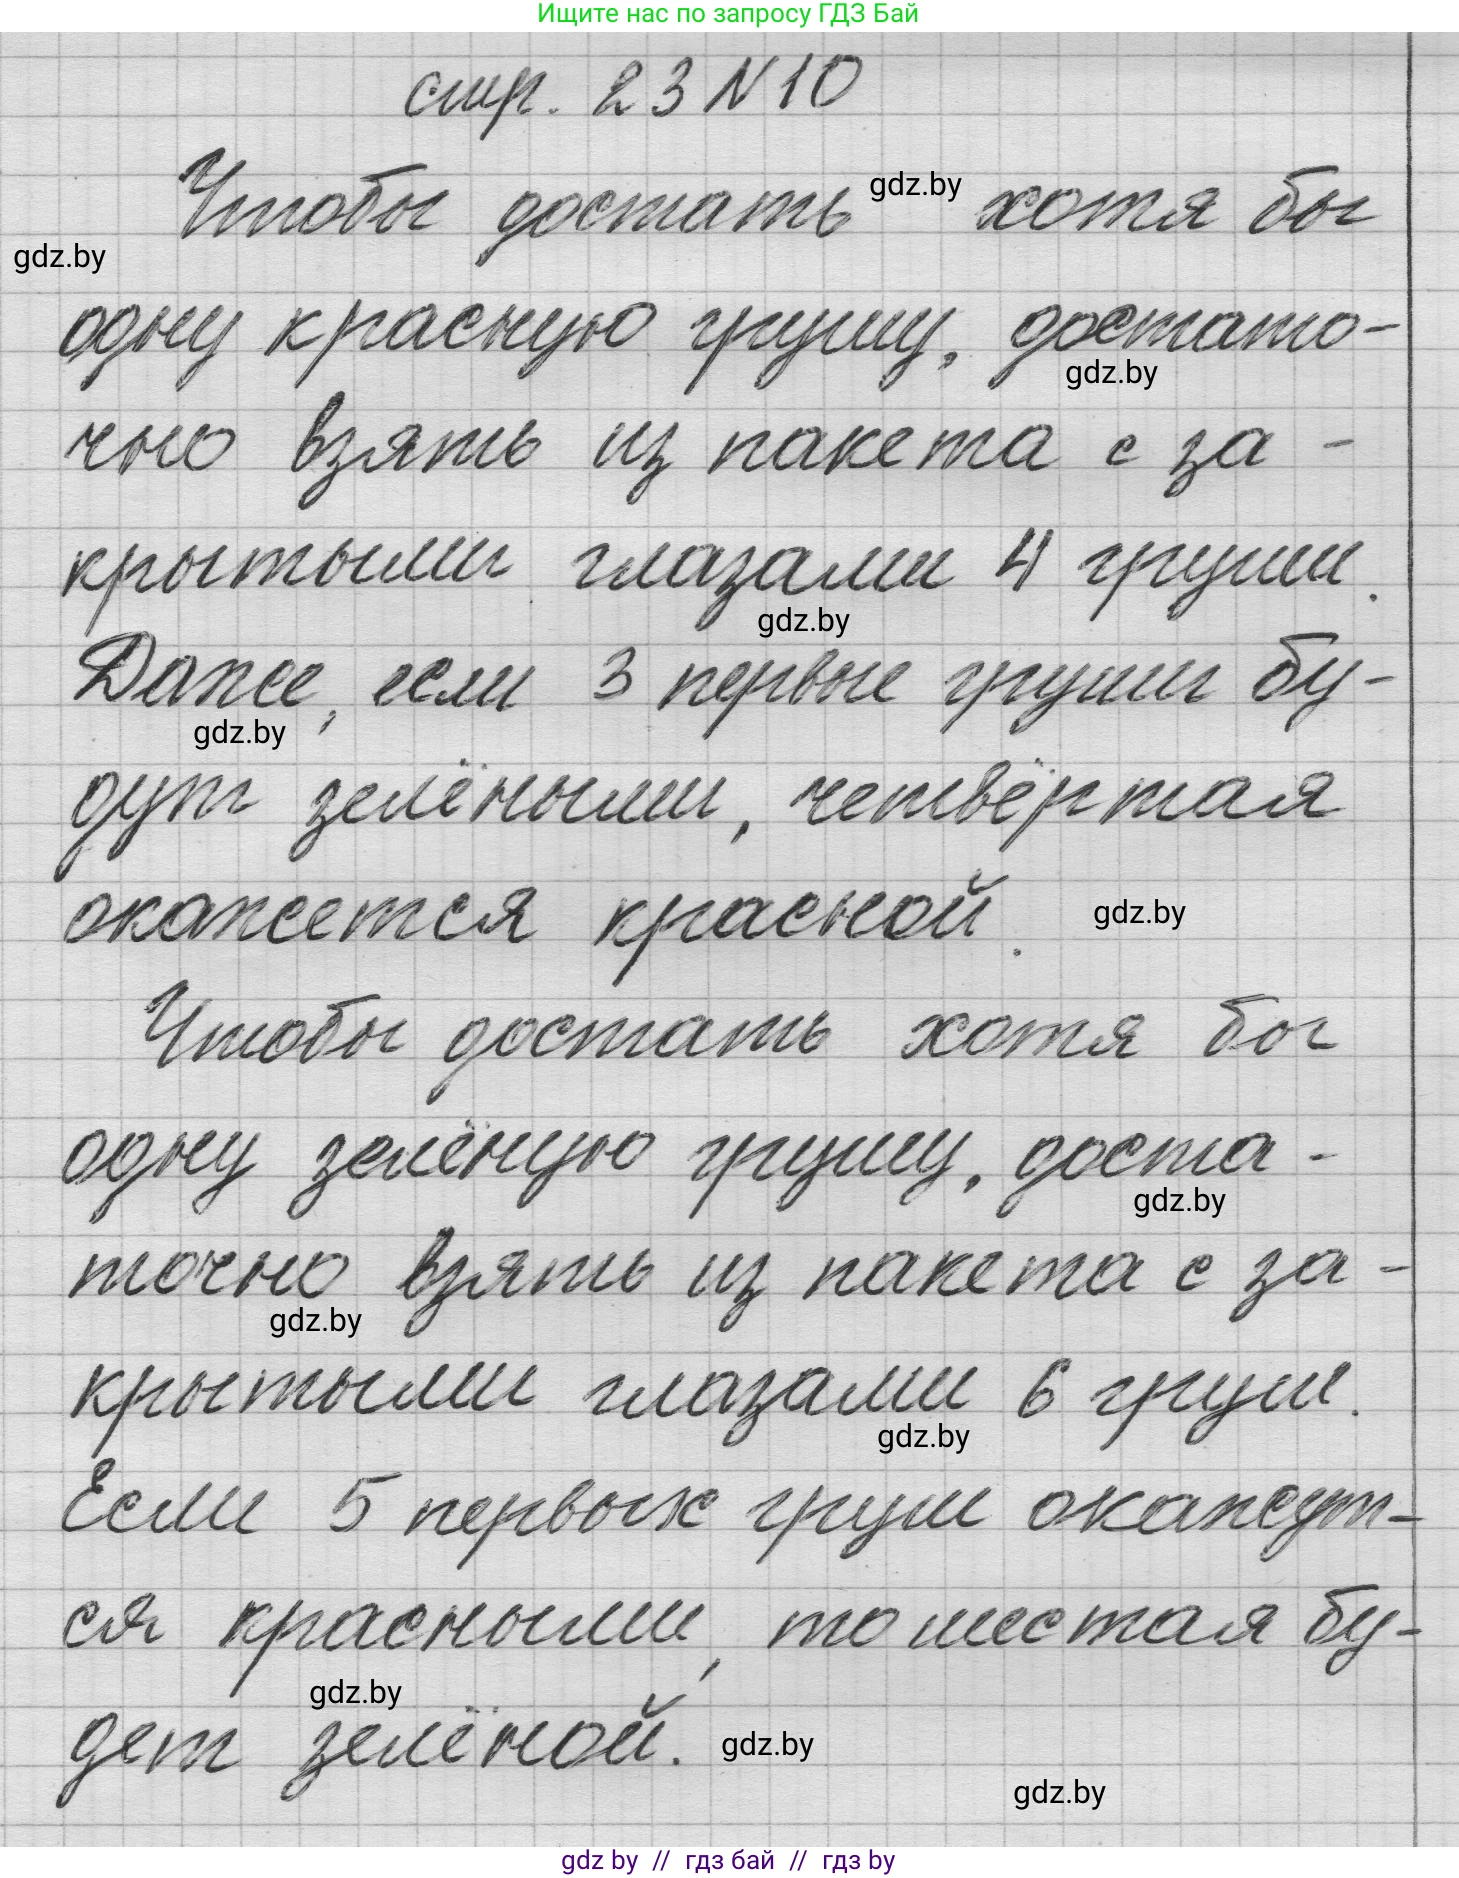 Ищите нас по запросу ГДЗ Бай
стр. 23 N 10
Чтобы достать gdz.by хотя бы
gdz.by
одну красную грушу, достато-
gdz.by
чно взять из пакета с за-
крытыми глазами 4 груши.
gdz.by
Даже, если 3 первые груши бу-
gdz.by
дут зелёными, четвёртая
окажется красной. gdz.by
Чтобы достать хотя бы
одну зелёную грушу, доста-
gdz.by
точно взять из пакета с за-
gdz.by
крытыми глазами 6 груш.
gdz.by
Если 5 первых груш окажут-
ся красными, то шестая бу-
gdz.by
дет зелёной. gdz.by
gdz.by
gdz by // гдз бай // гдз by